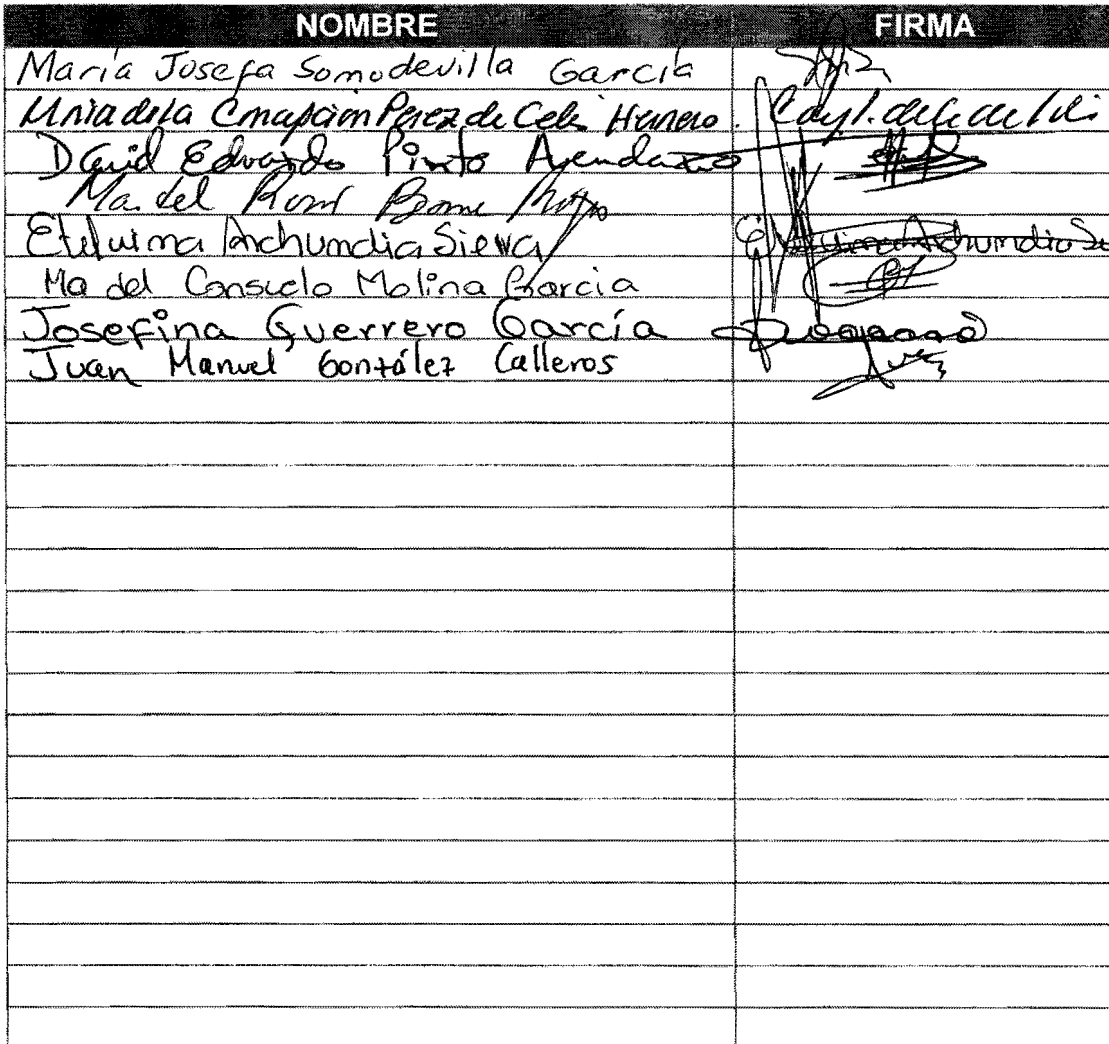 NOMBRE FIRMA
María Josefa Somodevilla García
María de la Concepción Pérez de Celis Herrero
David Eduardo Pinto Avendaño
Ma. del
Etelvina Archundia Sierra Etelvina Archundia Si
Ma del Consuelo Molina García
Josefina Guerrero García
Juan Manuel González Calleros